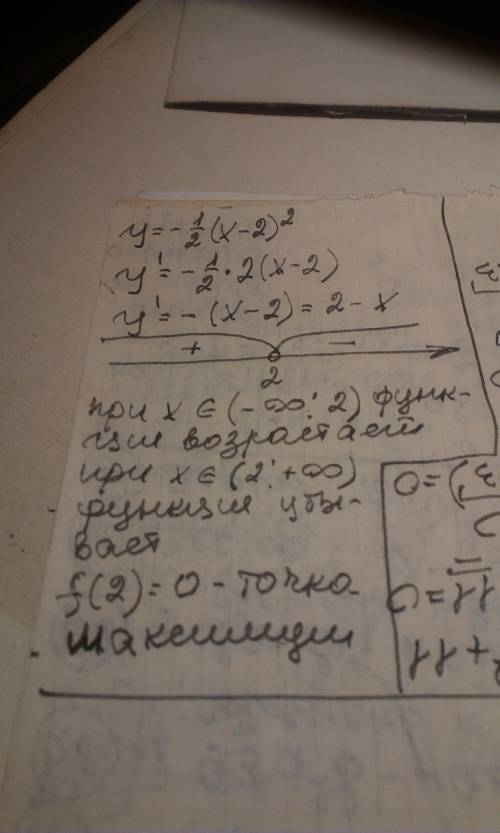 y = -1/2 (x-2)²
y' = -1/2 · 2(x-2)
y' = -(x-2) = 2-x
+ −
2
при x ∈ (-∞; 2) функ-
ция возрастает
при x ∈ (2; +∞)
функция убы-
вает
f(2) = 0 - точка
максимум